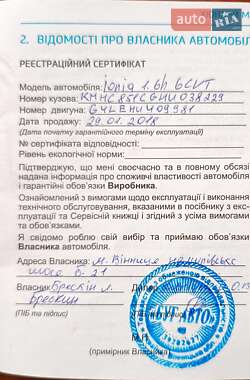 AUTO RIA
2. ВІДОМОСТІ ПРО ВЛАСНИКА АВТОМОБІЛ
РЕЄСТРАЦІЙНИЙ СЕРТИФІКАТ
Модель автомобіля: ioniq 1.6h 6CVT
Номер кузова: KMHC851CGHU038229
Номер двигуна: G4LEHU409981
Дата продажу: 29.01.2018
(Дата початку гарантійного терміну експлуатації)
№ сертифіката відповідності:
Рівень екологічних норм:
Підтверджую, що мені своєчасно та в повному обсязі
надана інформація про споживчі властивості автомобіля
і гарантійні обов'язки Виробника.
Ознайомлений з вимогами щодо експлуатації і виконання
технічного обслуговування, вказаними в посібнику з екс
та Сервісній книжці і згідний з усіма вимогами
та обов'язками.
Я свідомо роблю свій вибір та приймаю обов'язки
Власника автомобіля.
Адреса Власника: м. Вінниця
шосе б. 21
Власник Брескін Л.
Брескин
(ПІБ та підпис)
(ПІБ та підпис)
М.П.
(примірник Власника)